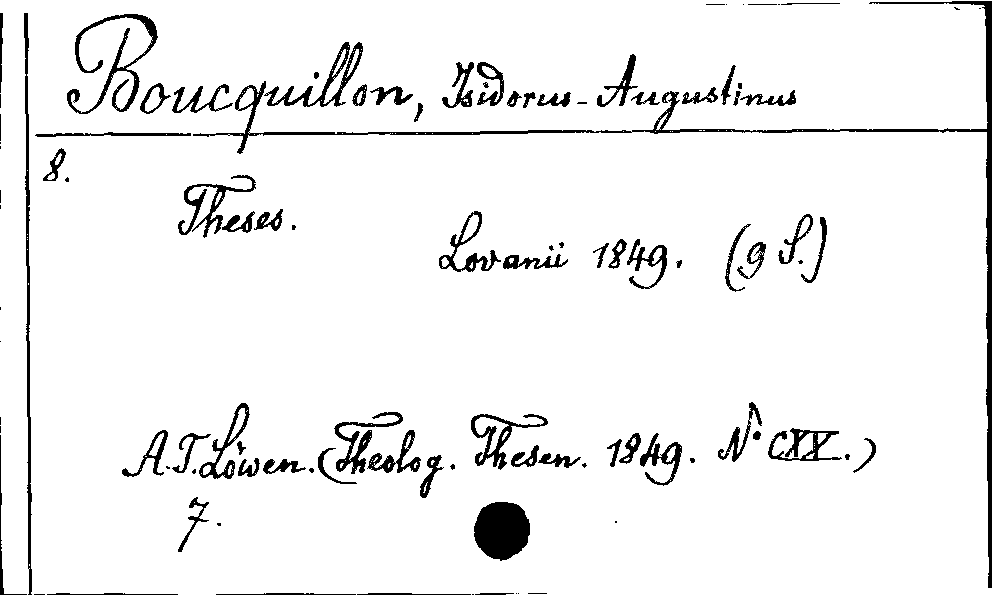 Boucquillon, Isidorus-Augustinus
8.
Theses.
Lovanii 1849. (9 S.)
A.T. Löwen. (Theolog. Thesen. 1849. N° CXX.)
7.